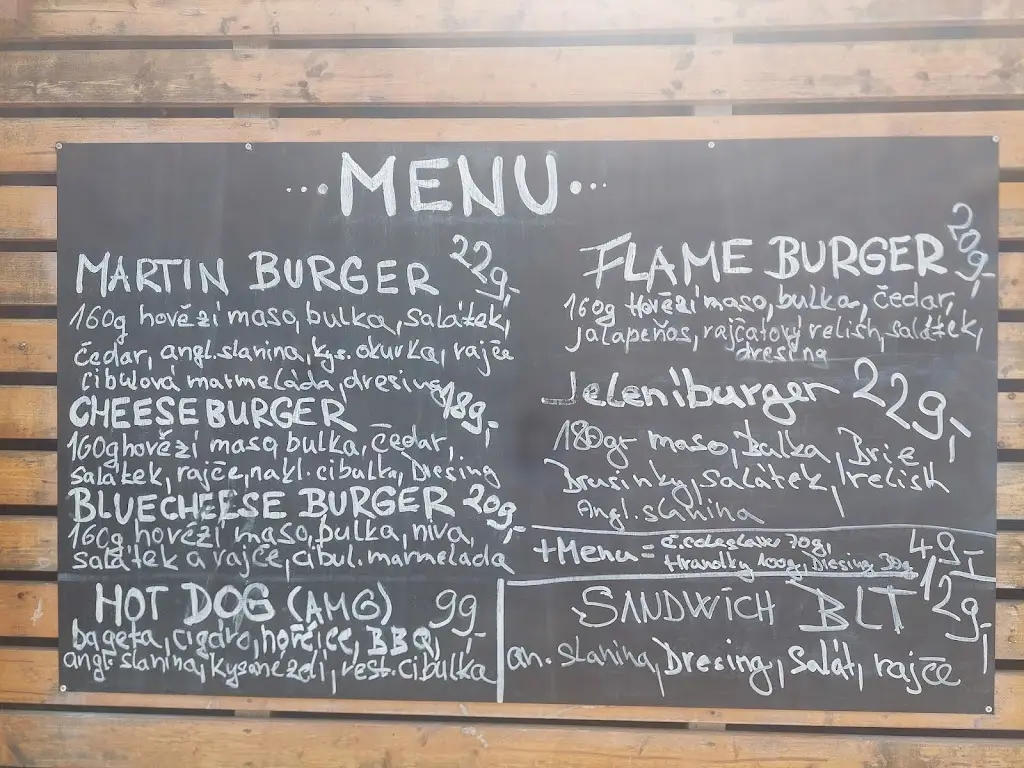 ...MENU...
MARTIN BURGER 229,-
160g hovězí maso, bulka, salátek,
čedar, angl. slanina, kys. okurka, rajče
cibulová marmeláda, dresing
CHEESEBURGER 189,-
160g hovězí maso, bulka, čedar,
salátek, rajče, nakl. cibulka, Dresing
BLUECHEESE BURGER 209,-
160g hovězí maso, bulka, niva,
salátek a rajče, cibul. marmeláda
HOT DOG (AMG) 99,-
bageta, cigáro, hořčice, BBQ,
angl. slanina, kysané zelí, rest. cibulka
FLAME BURGER 209,-
160g Hovězí maso, bulka, čedar,
jalapeños, rajčatový relish, salátek,
dresing
Jeleníburger 229,-
180gr maso, Bulka, Brie
Brusinky, Salátek, relish
Angl. slanina
+Menu = č. coleslaw 70g, 49,-
Hranolky 100g, Dresing
SANDWICH BLT 129,-
an. slanina, Dresing, Salát, rajče